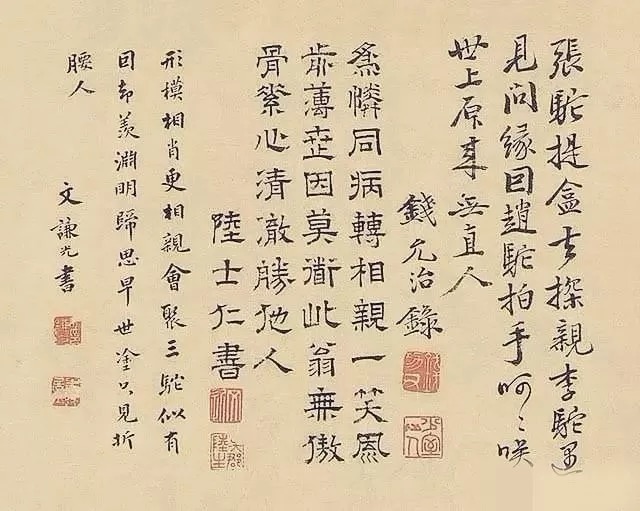 張駝提盒去探親李駝遇
見問緣囙趙駝拍手呵〻咲
世上原來無直人
錢允治錄
為憐同病轉相親一笑風
歬薄世因莫衜此翁無傲
骨素心清澈勝他人
陸士仁書
形模相肖更相親會聚三駝似有
囙却羨淵明歸思早世塗只見折
腰人
文謙光書